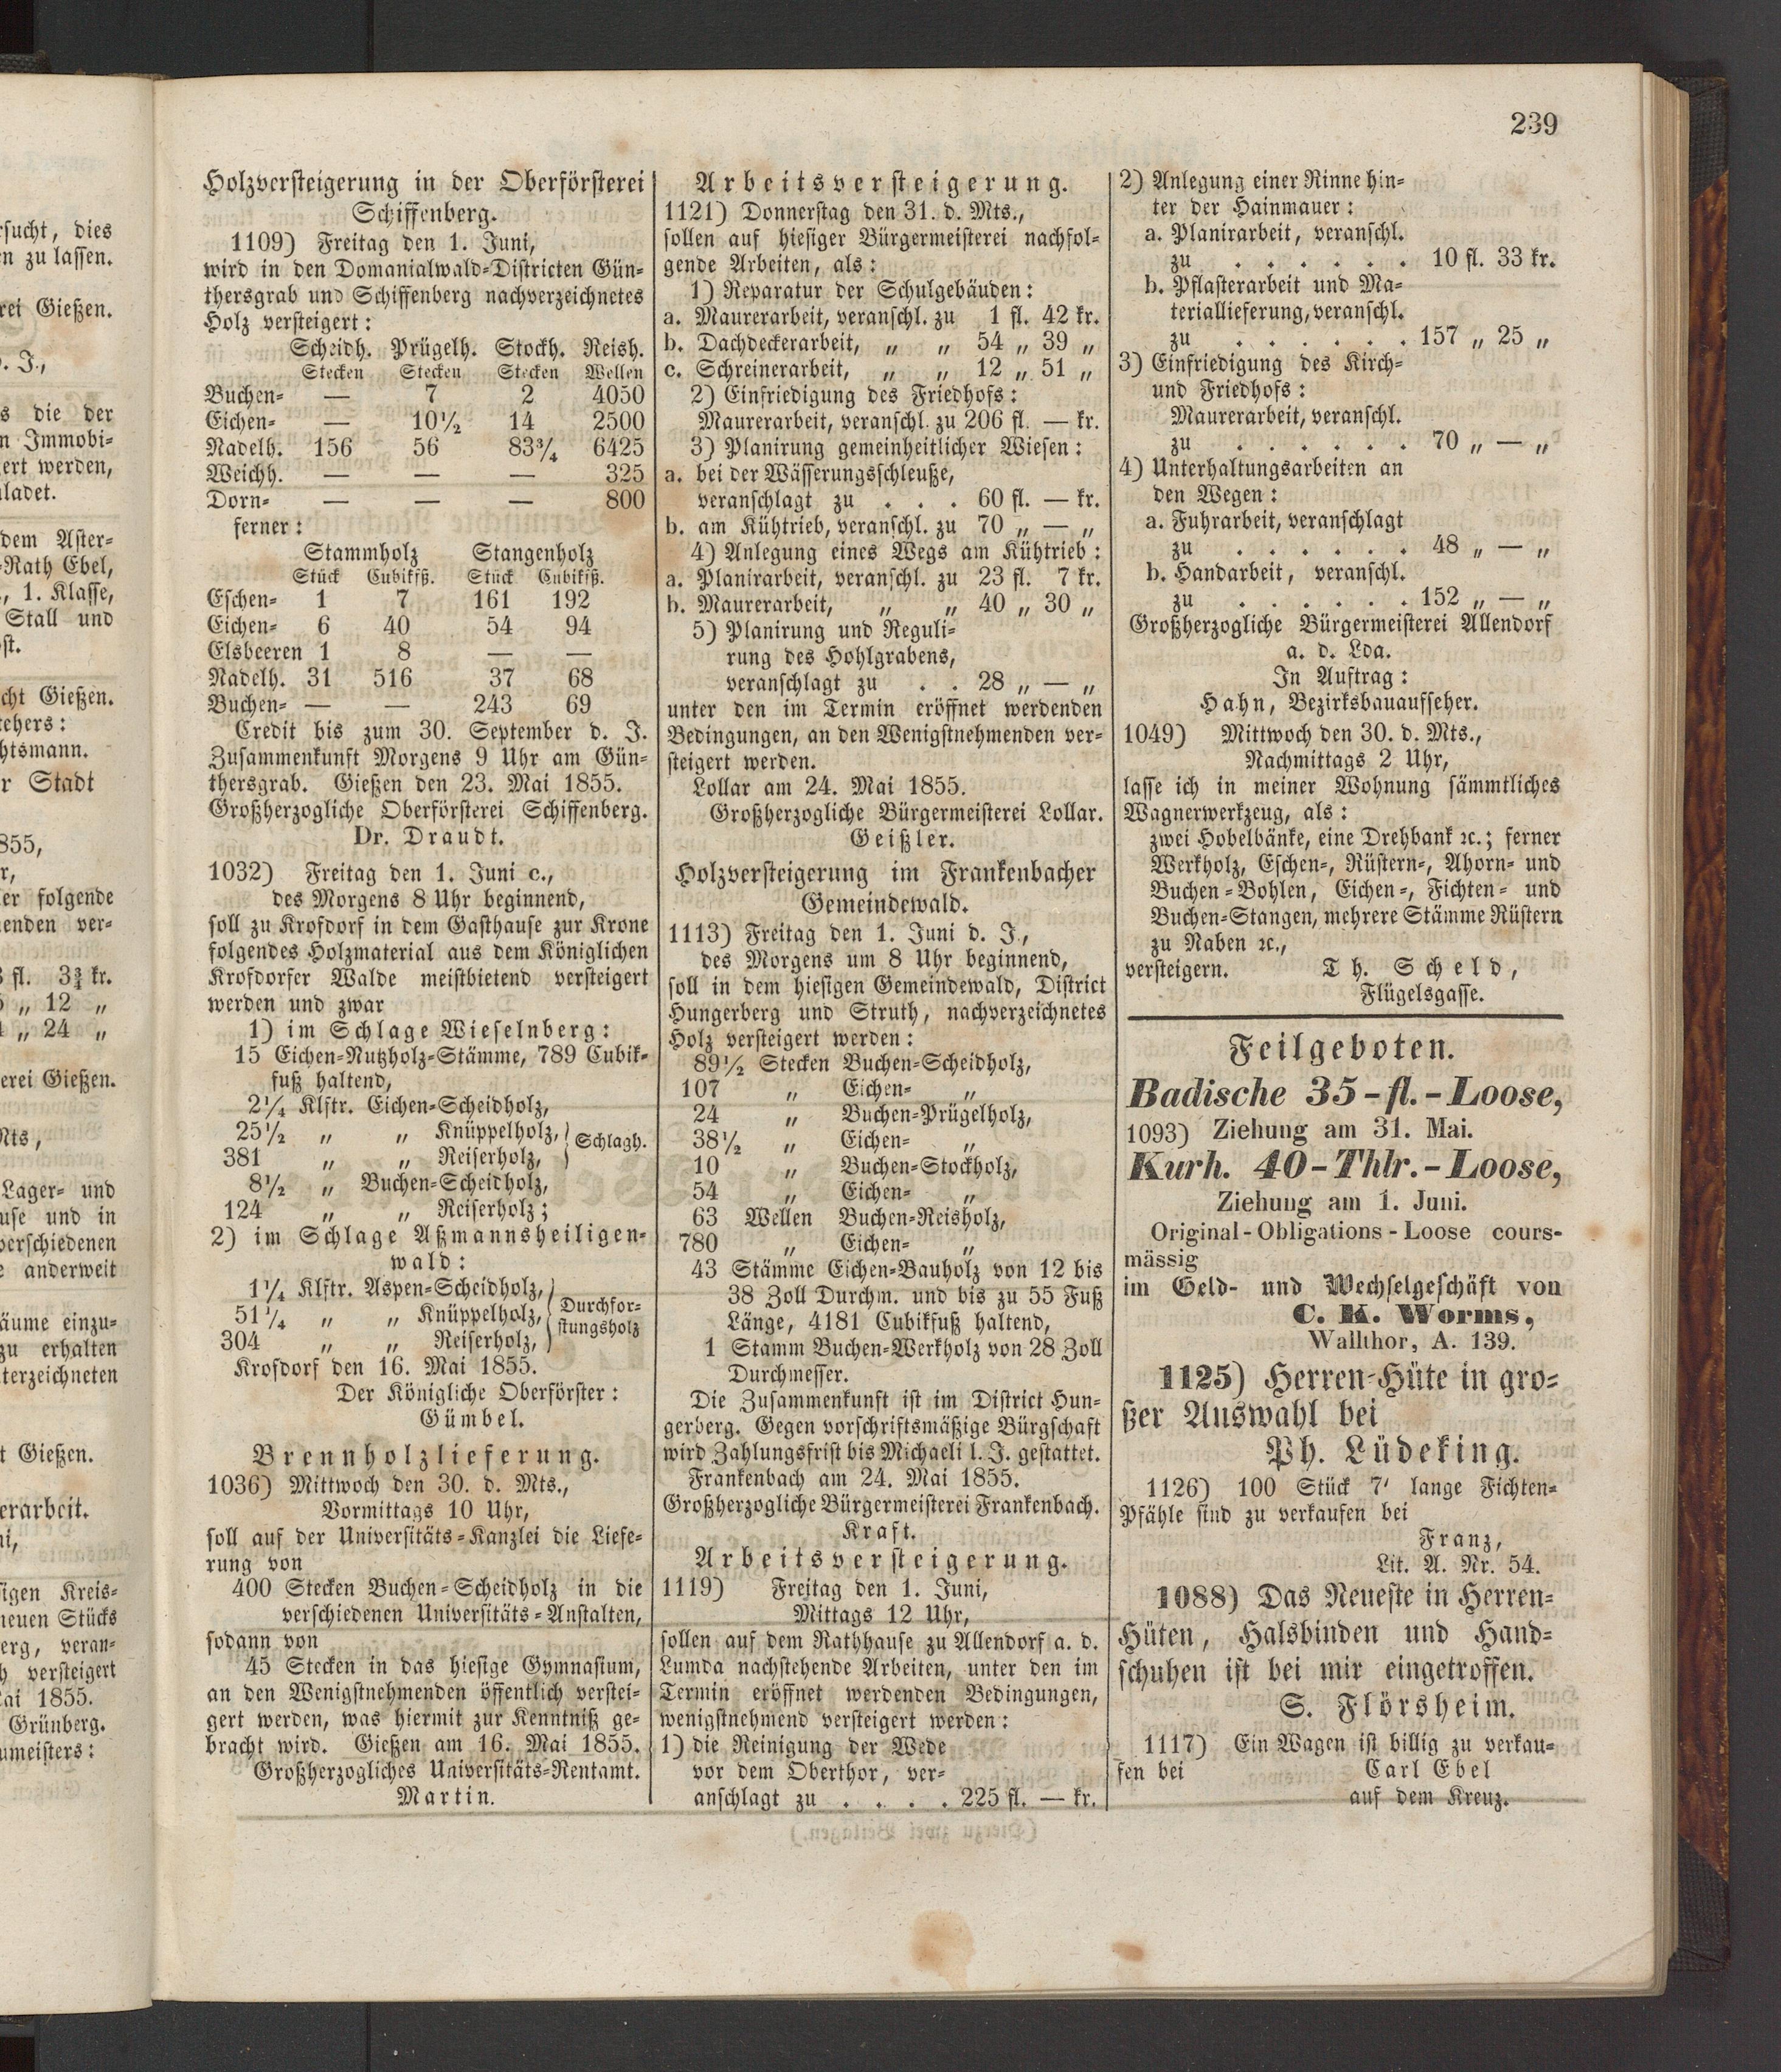 239
Holzversteigerung in der Oberförsterei
Schiffenberg.
1109) Freitag den 1. Juni,
wird in den Domanialwald-Districten Gün-
thersgrab und Schiffenberg nachverzeichnetes
Holz versteigert:
Scheidh. Prügelh. Stockh. Reish.
Stecken Stecken Stecken Wellen
Buchen- — 7 2 4050
Eichen- — 10½ 14 2500
Nadelh. 156 56 83¾ 6425
Weichh. — — — 325
Dorn- — — — 800
ferner:
Stammholz Stangenholz
Stück Cubikfß. Stück Cubikfß.
Eschen- 1 7 161 192
Eichen- 6 40 54 94
Elsbeeren 1 8 — —
Nadelh. 31 516 37 68
Buchen- — — 243 69
Credit bis zum 30. September d. J.
Zusammenkunft Morgens 9 Uhr am Gün-
thersgrab. Gießen den 23. Mai 1855.
Großherzogliche Oberförsterei Schiffenberg.
Dr. Draudt.
1032) Freitag den 1. Juni c.,
des Morgens 8 Uhr beginnend,
soll zu Krofdorf in dem Gasthause zur Krone
folgendes Holzmaterial aus dem Königlichen
Krofdorfer Walde meistbietend versteigert
werden und zwar
1) im Schlage Wieselnberg:
15 Eichen-Nutzholz-Stämme, 789 Cubik-
fuß haltend,
2¼ Klftr. Eichen-Scheidholz,
25½ „ „ Knüppelholz, Schlagh.
381 „ „ Reiserholz,
8½ „ Buchen-Scheidholz,
124 „ „ Reiserholz;
2) im Schlage Aßmannsheiligen-
wald:
1¼ Klftr. Aspen-Scheidholz,
51¼ „ „ Knüppelholz, Durchfor-
stungsholz
304 „ „ Reiserholz,
Krofdorf den 16. Mai 1855.
Der Königliche Oberförster:
Gümbel.
Brennholzlieferung.
1036) Mittwoch den 30. d. Mts.,
Vormittags 10 Uhr,
soll auf der Universitäts-Kanzlei die Liefe-
rung von
400 Stecken Buchen-Scheidholz in die
verschiedenen Universitäts-Anstalten,
sodann von
45 Stecken in das hiesige Gymnasium,
an den Wenigstnehmenden öffentlich verstei-
gert werden, was hiermit zur Kenntniß ge-
bracht wird. Gießen am 16. Mai 1855.
Großherzogliches Universitäts-Rentamt.
Martin.
Arbeitsversteigerung.
1121) Donnerstag den 31. d. Mts.,
sollen auf hiesiger Bürgermeisterei nachfol-
gende Arbeiten, als:
1) Reparatur der Schulgebäuden:
a. Maurerarbeit, veranschl. zu 1 fl. 42 kr.
b. Dachdeckerarbeit, „ „ 54 „ 39 „
c. Schreinerarbeit, „ „ 12 „ 51 „
2) Einfriedigung des Friedhofs:
Maurerarbeit, veranschl. zu 206 fl. — kr.
3) Planirung gemeinheitlicher Wiesen:
a. bei der Wässerungsschleuße,
veranschlagt zu . . . 60 fl. — kr.
b. am Kühtrieb, veranschl. zu 70 „ — „
4) Anlegung eines Wegs am Kühtrieb:
a. Planirarbeit, veranschl. zu 23 fl. 7 kr.
b. Maurerarbeit, „ „ 40 „ 30 „
5) Planirung und Reguli-
rung des Hohlgrabens,
veranschlagt zu . . 28 „ — „
unter den im Termin eröffnet werdenden
Bedingungen, an den Wenigstnehmenden ver-
steigert werden.
Lollar am 24. Mai 1855.
Großherzogliche Bürgermeisterei Lollar.
Geißler.
Holzversteigerung im Frankenbacher
Gemeindewald.
1113) Freitag den 1. Juni d. J.,
des Morgens um 8 Uhr beginnend,
soll in dem hiesigen Gemeindewald, District
Hungerberg und Struth, nachverzeichnetes
Holz versteigert werden:
89½ Stecken Buchen-Scheidholz,
107 „ Eichen- „
24 „ Buchen-Prügelholz,
38½ „ Eichen- „
10 „ Buchen-Stockholz,
54 „ Eichen- „
63 Wellen Buchen-Reisholz,
780 „ Eichen- „
43 Stämme Eichen-Bauholz von 12 bis
38 Zoll Durchm. und bis zu 55 Fuß
Länge, 4181 Cubikfuß haltend,
1 Stamm Buchen-Werkholz von 28 Zoll
Durchmesser.
Die Zusammenkunft ist im District Hun-
gerberg. Gegen vorschriftsmäßige Bürgschaft
wird Zahlungsfrist bis Michaeli l. J. gestattet.
Frankenbach am 24. Mai 1855.
Großherzogliche Bürgermeisterei Frankenbach.
Kraft.
Arbeitsversteigerung.
1119) Freitag den 1. Juni,
Mittags 12 Uhr,
sollen auf dem Rathhause zu Allendorf a. d.
Lumda nachstehende Arbeiten, unter den im
Termin eröffnet werdenden Bedingungen,
wenigstnehmend versteigert werden:
1) die Reinigung der Wede
vor dem Oberthor, ver-
anschlagt zu . . . . 225 fl. — kr.
2) Anlegung einer Rinne hin-
ter der Hainmauer:
a. Planirarbeit, veranschl.
zu . . . . . . 10 fl. 33 kr.
b. Pflasterarbeit und Ma-
teriallieferung, veranschl.
zu . . . . . . 157 „ 25 „
3) Einfriedigung des Kirch-
und Friedhofs:
Maurerarbeit, veranschl.
zu . . . . . . 70 „ — „
4) Unterhaltungsarbeiten an
den Wegen:
a. Fuhrarbeit, veranschlagt
zu . . . . . . 48 „ — „
b. Handarbeit, veranschl.
zu . . . . . . 152 „ — „
Großherzogliche Bürgermeisterei Allendorf
a. d. Lda.
In Auftrag:
Hahn, Bezirksbauaufseher.
1049) Mittwoch den 30. d. Mts.,
Nachmittags 2 Uhr,
lasse ich in meiner Wohnung sämmtliches
Wagnerwerkzeug, als:
zwei Hobelbänke, eine Drehbank ꝛc.; ferner
Werkholz, Eschen-, Rüstern-, Ahorn- und
Buchen-Bohlen, Eichen-, Fichten- und
Buchen-Stangen, mehrere Stämme Rüstern
zu Naben ꝛc.,
versteigern. Th. Scheld,
Flügelsgasse.
Feilgeboten.
Badische 35-fl.-Loose,
1093) Ziehung am 31. Mai.
Kurh. 40-Thlr.-Loose,
Ziehung am 1. Juni.
Original-Obligations-Loose cours-
mässig
im Geld- und Wechselgeschäft von
C. K. Worms,
Wallthor, A. 139.
1125) Herren-Hüte in gro-
ßer Auswahl bei
Ph. Lüdeking.
1126) 100 Stück 7' lange Fichten-
Pfähle sind zu verkaufen bei
Franz,
Lit. A. Nr. 54.
1088) Das Neueste in Herren-
Hüten, Halsbinden und Hand-
schuhen ist bei mir eingetroffen.
S. Flörsheim.
1117) Ein Wagen ist billig zu verkau-
fen bei Carl Ebel
auf dem Kreuz.